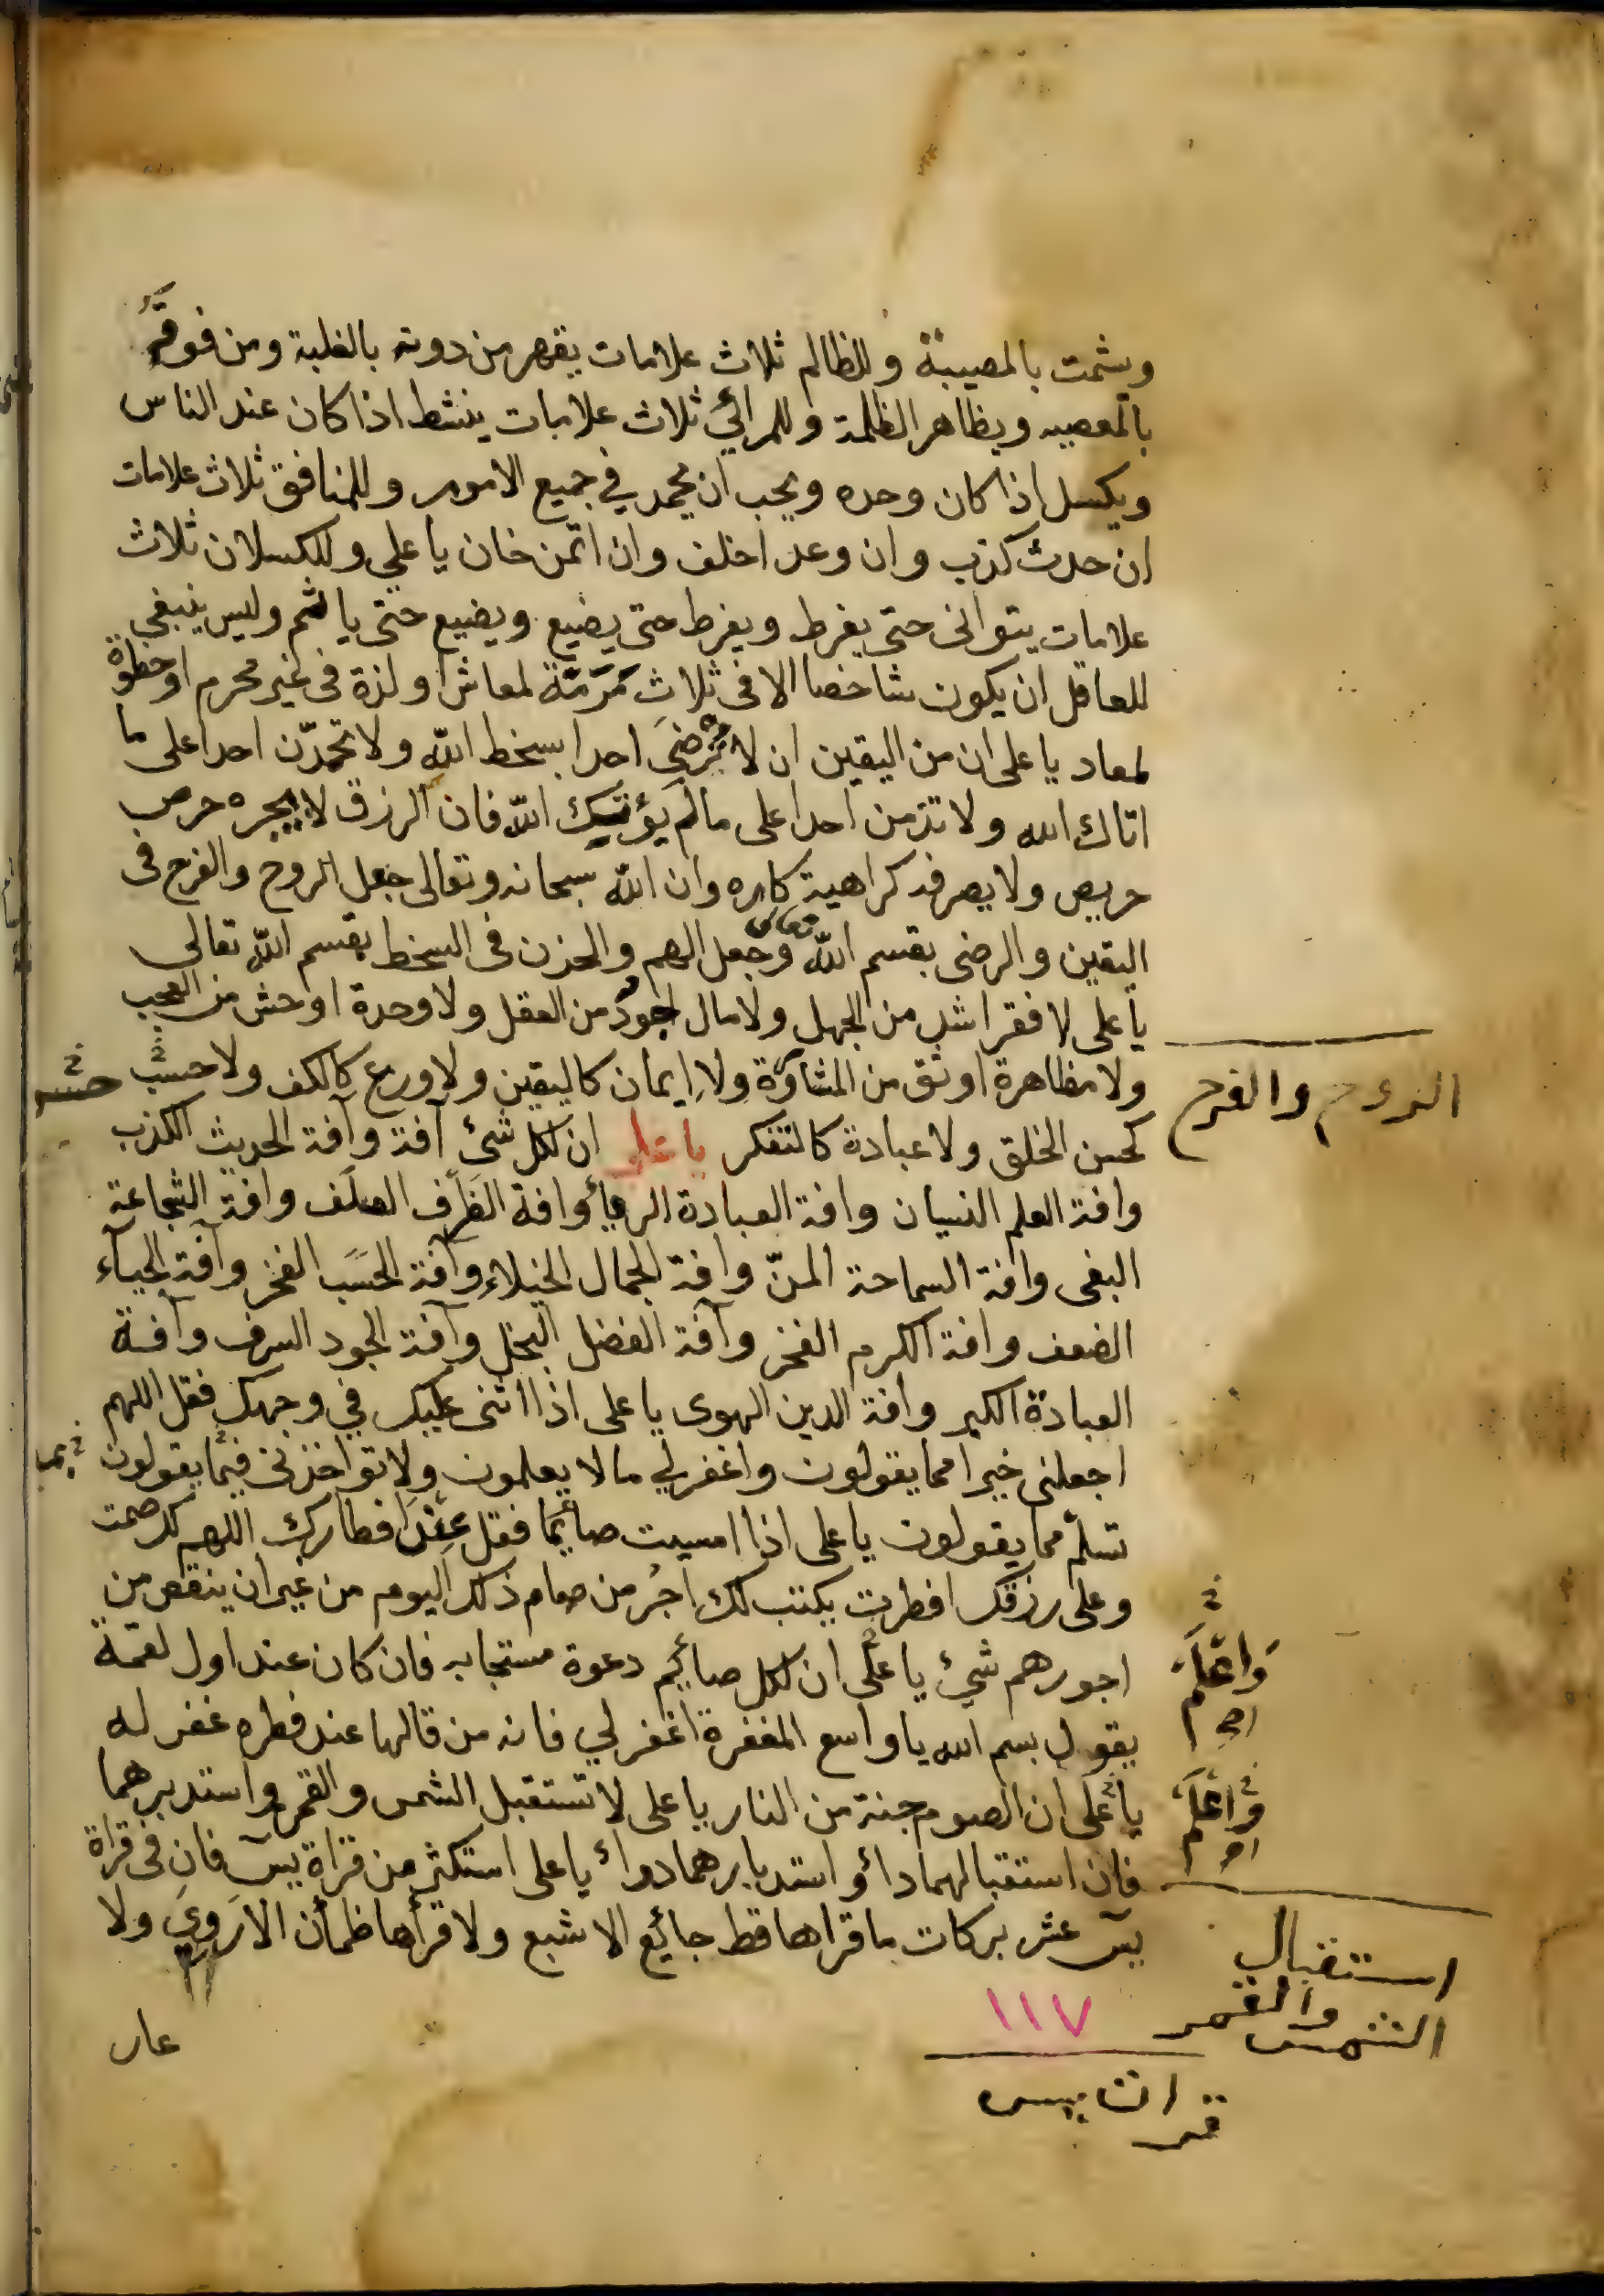 ويشمت بالمصيبة وللظالم ثلاث علامات يقهر من دونه بالغلبة ومن فوقه
بالمعصيه ويظاهر الظلمة وللمرائي ثلاث علامات ينشط اذا كان عند الناس
ويكسل اذا كان وحده ويحب ان يحمد في جميع الامور وللمنافق ثلاث علامات
ان حدث كذب وان وعد اخلف وان اتمن خان يا علي وللكسلان ثلاث
علامات يتوانى حتى يفرط ويفرط حتى يضيع ويضيع حتى ياثم وليس ينبغي
للعاقل ان يكون شاخصا الا فى ثلاث مَرَمَّة لمعاش او لذة فى غير محرم او خطوة
لمعاد يا على ان من اليقين ان لا ترضىَ احدا بسخط اللّه ولا تحمدّن احدا على ما
اتاك الله ولا تذمن احدا على مالم يؤتيك اللّه فان الرزق لا يجره حرص
حريص ولا يصرفه كراهية كاره وان اللّه سبحانه وتعالى جعل الروح والفرح فى
اليقين والرضى بقسم اللّه تعالى وجعل الهم والحزن فى السخط بقسم اللّه تعالى
يا على لا فقر اشد من الجهل ولا مال اجودُ من العقل ولا وحدة اوحش من العجب
الروح والفرح
ولا مظاهرة اوثق من المشاورة ولا إيمان كاليقين ولا ورع كالكف ولا حسب
كحسن الخلق ولا عبادة كالتفكر يا على ان لكل شئ آفة وآفة الحديث الكذب
وافة العلم النسيان وافة العبادة الرياء وافة الظَرف الصلَف وافة الشجاعة
البغى وافة السماحة المنّ وافة الجمال الخيلاء وآفة الحَسَب الفخر وآفة الحياء
الضعف وافة الكرم الفخر وآفة الفضل البخل وآفة الجود السرف وآفة
العبادة الكبر وافة الدين الهوى يا على اذا اثنى عليك في وجهك فقل اللهم
اجعلنى خيرا مما يقولون واغفر لي مالا يعلمون ولا تواخذنى فيما يقولون
تسلم مما يقولون يا على اذا امسيت صائما فقل عِندَ افطارك اللهم لك صمت
وعلى رزقك افطرت يكتب لك اجرُ من صام ذلك اليوم من غير ان ينقص من
اجورهم شئ يا على ان لكل صائم دعوة مستجابه فان كان عند اول لقمة
وَاعْلَم
يقول بسم الله يا واسع المغفرة اغفر لي فانه من قالها عند فطره غفر له
يا على ان الصوم جنة من النار يا على لا تستقبل الشمس والقمر واستدبرهما
وَاعْلَم
فان استقبالهما داءُ واستدبارهما دواءُ يا على استكثر من قراة يسٓ فان فى قراة
يسٓ عشر بركات ما قراها قط جائع الا شبع ولا قرأها ظمأن الا رَوِيَ ولا
استقبال
الشمس والقمر
١١٧
عار
قرات يس